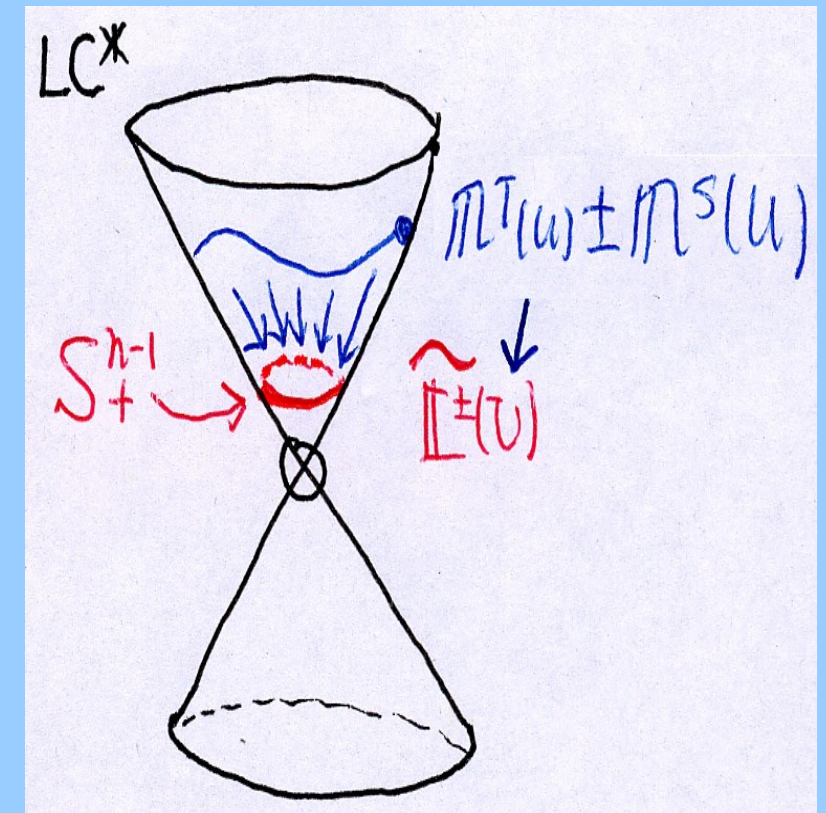 LC*
𝕟ᵀ(u) ± 𝕟ˢ(u)
↓
S₊ⁿ⁻¹ → 𝕃̃^±(U)